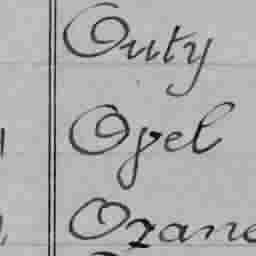 Outy
Opel
Ozane